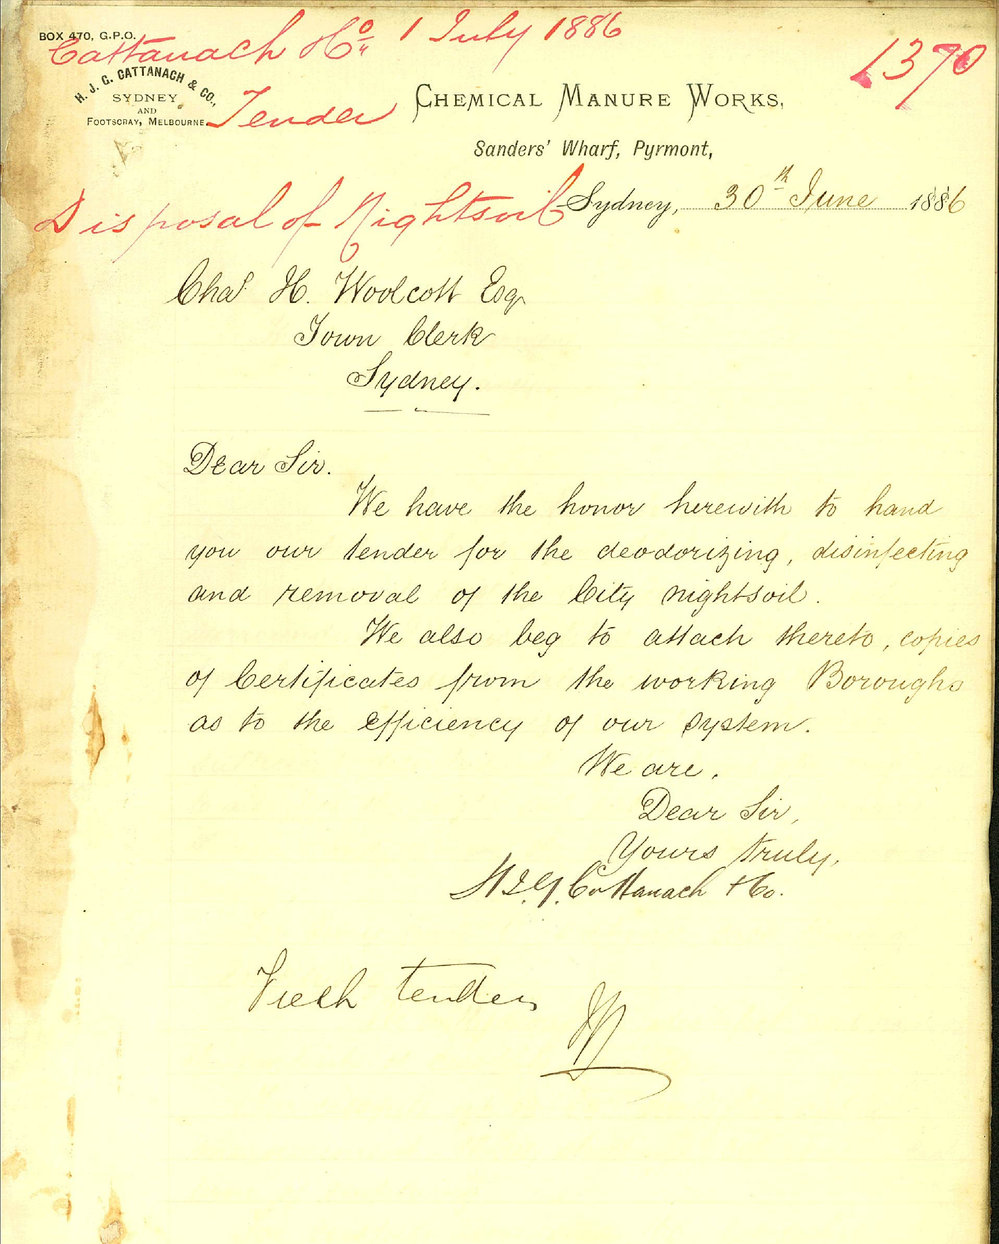 BOX 470, G.P.O.
Cattanach & Co. 1 July 1886
1370
H. J. G. CATTANACH & CO.,
SYDNEY
AND
FOOTSCRAY, MELBOURNE.
Tender
CHEMICAL MANURE WORKS,
Sanders' Wharf, Pyrmont,
Disposal of Nightsoil
Sydney, 30th June 1886
Chas H. Woolcott Esq
Town Clerk
Sydney.
Dear Sir.
We have the honor herewith to hand
you our tender for the deodorizing, disinfecting
and removal of the City nightsoil.
We also beg to attach thereto, copies
of Certificates from the working Boroughs
as to the efficiency of our system.
We are,
Dear Sir,
Yours truly,
H. J. G. Cattanach & Co.
Fresh tenders